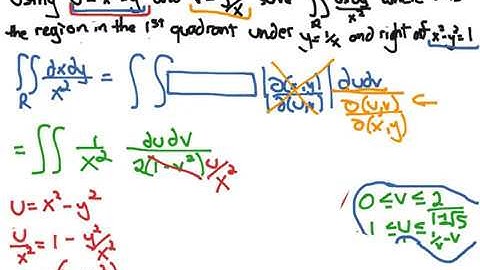 Using U = x² - y² and V = y/x solve ∬_R dxdy/x² where R is
the region in the 1st quadrant under y = 1/x and right of x² - y² = 1
∬_R dxdy/x² = ∬ |∂(x,y)/∂(u,v)| dudv / (∂(u,v)/∂(x,y)) ←
= ∬ 1/x² dudv/2(1-v²) u/x²
U = x² - y²
U/x² = 1 - y²/x²
0 ≤ V ≤ 2/(1+√5)
1 ≤ U ≤ 1/v - v